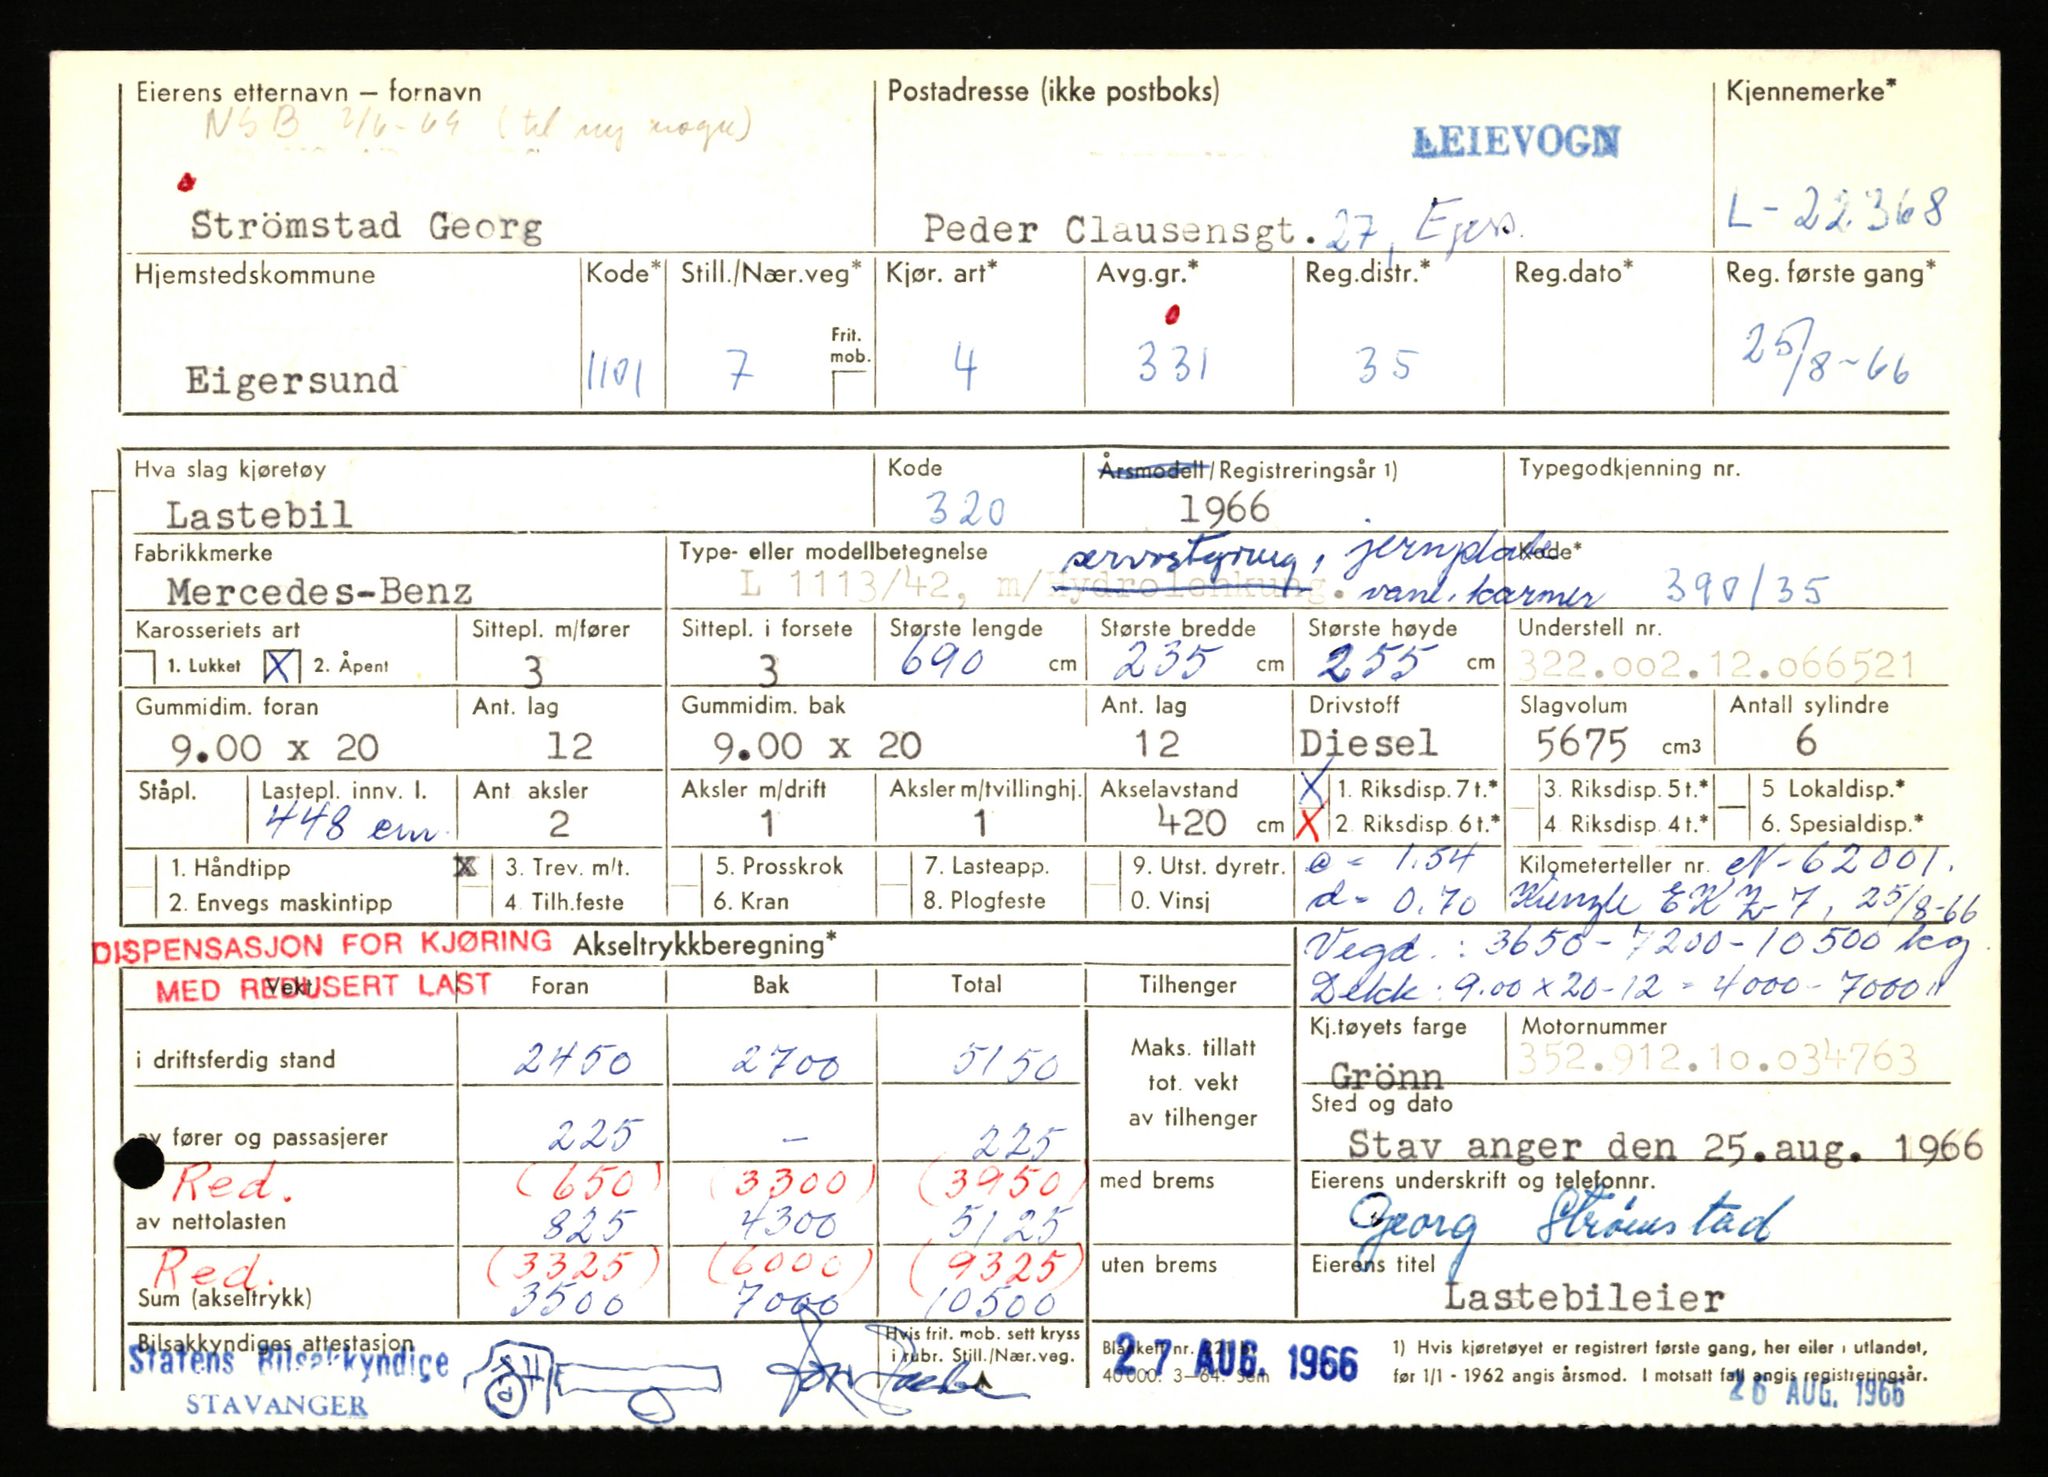 Eierens etternavn – fornavn
Postadresse (ikke postboks)
Kjennemerke*
NSB 2/6-69 (til ny vogn)
LEIEVOGN
Strömstad Georg
Peder Clausensgt. 27, Egers.
L-22368
Hjemstedskommune
Kode*
Still./Nær.veg*
Kjør. art*
Avg.gr.*
Reg.distr.*
Reg.dato*
Reg. første gang*
Frit. mob.
Eigersund
1101
7
4
331
35
25/8-66
Hva slag kjøretøy
Kode
Årsmodell/Registreringsår 1)
Typegodkjenning nr.
Lastebil
320
1966
Fabrikkmerke
Type- eller modellbetegnelse
servostyring, jernplate
Kode*
Mercedes-Benz
L 1113/42, m/Hydrolenkung. karmer
390/35
Karosseriets art
Sittepl. m/fører
Sittepl. i forsete
Største lengde
Største bredde
Største høyde
Understell nr.
1. Lukket X 2. Åpent
3
3
690 cm
235 cm
255 cm
322.002.12.066521
Gummidim. foran
Ant. lag
Gummidim. bak
Ant. lag
Drivstoff
Slagvolum
Antall sylindre
9.00 x 20
12
9.00 x 20
12
Diesel
5675 cm3
6
Ståpl.
Lastepl. innv. l.
Ant aksler
Aksler m/drift
Aksler m/tvillinghj.
Akselavstand
X 1. Riksdisp. 7 t.*
3. Riksdisp. 5 t.*
5 Lokaldisp.*
448 cm
2
1
1
420 cm
X 2. Riksdisp. 6 t.*
4. Riksdisp. 4 t.*
6. Spesialdisp.*
1. Håndtipp
X 3. Trev. m/t.
5. Prosskrok
7. Lasteapp.
9. Utst. dyretr.
a = 1.54
Kilometerteller nr. N-62001.
2. Envegs maskintipp
4. Tilh.feste
6. Kran
8. Plogfeste
0. Vinsj
d = 0.70
Kienzle EKZ-7, 25/8-66
DISPENSASJON FOR KJØRING
Akseltrykkberegning*
Vegd.: 3650-7200-10500 kg
MED REDUSERT LAST
Vekt
Foran
Bak
Total
Tilhenger
Dekk: 9.00x20-12 = 4000-7000 "
Kj.tøyets farge
Motornummer
i driftsferdig stand
2450
2700
5150
Maks. tillatt
tot. vekt
av tilhenger
Grönn
352.912.10.034763
Sted og dato
av fører og passasjerer
225
–
225
Stav anger den 25.aug. 1966
Red.
(650)
(3300)
(3950)
med brems
Eierens underskrift og telefonnr.
av nettolasten
825
4300
5125
Georg Strømstad
Red.
(3325)
(6000)
(9325)
uten brems
Eierens titel
Sum (akseltrykk)
3500
7000
10500
Lastebileier
Bilsakkyndiges attestasjon
Hvis frit. mob. sett kryss
i rubr. Still./Nær.veg.
Blankett nr.
40 000. 3–64. Sem
27 AUG. 1966
1) Hvis kjøretøyet er registrert første gang, her eiler i utlandet,
før 1/1 - 1962 angis årsmod. I motsatt fall angis registreringsår.
Statens Bilsakkyndige
STAVANGER
d
26 AUG. 1966